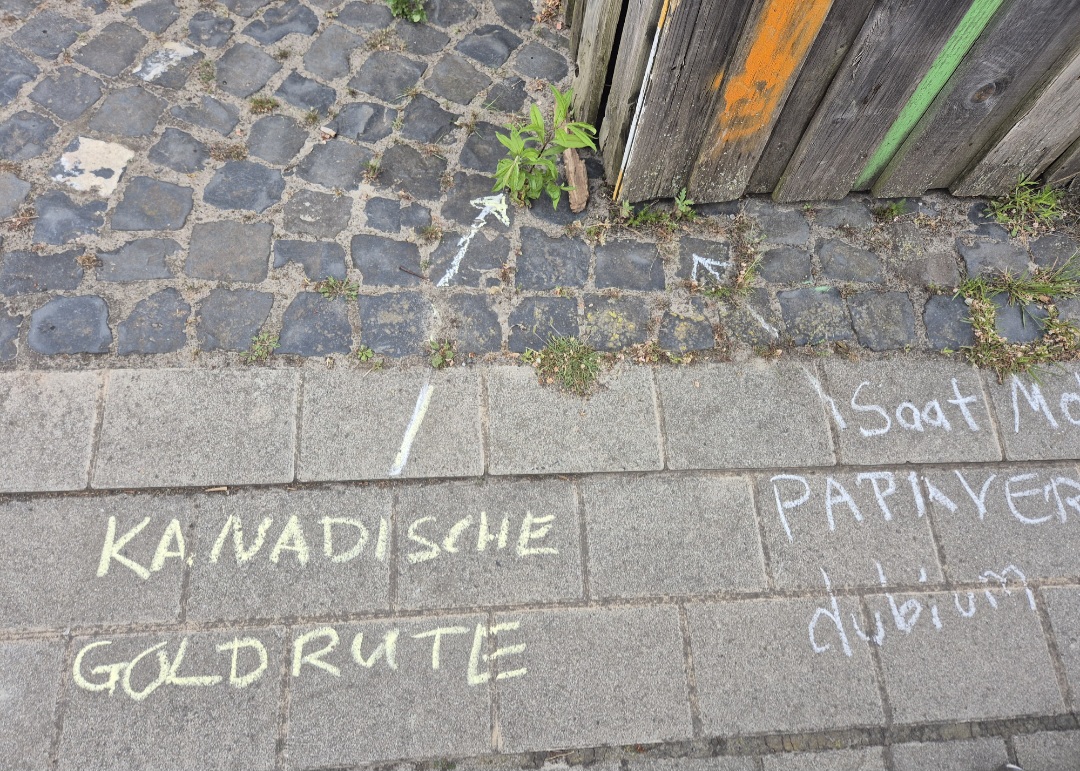 KANADISCHE
GOLDRUTE
Saat Mo
PAPAVER
dubium